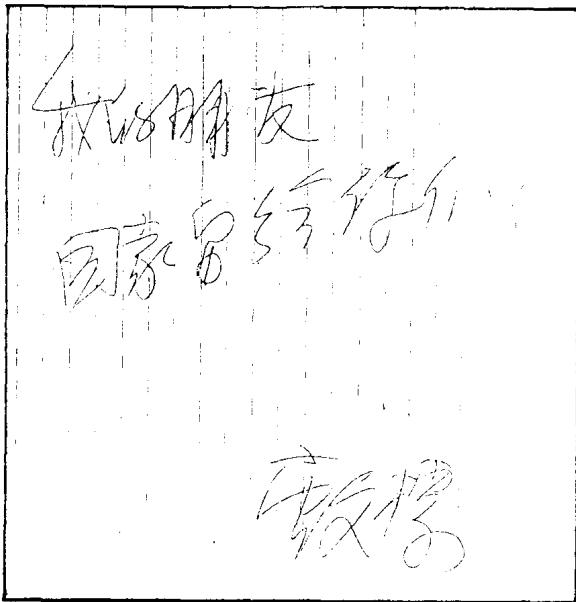 我的朋友
国家留给你们